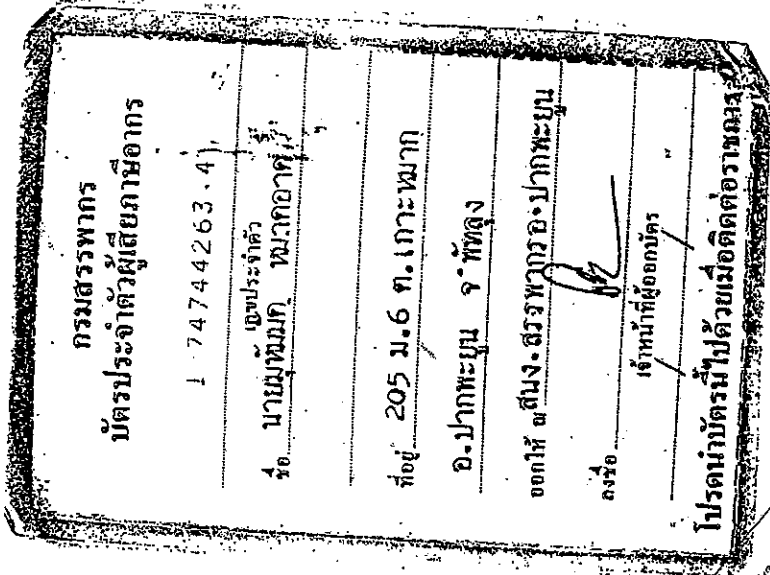 กรมสรรพากร
บัตรประจำตัวผู้เสียภาษีอากร
1 74744263.4
เลขประจำตัว
ชื่อ นายมูหัมมัด หมาดอาด
ที่อยู่ 205 ม.6 ต.เกาะหมาก
อ.ปากพะยูน จ พัทลุง
ออกให้ ณ สนง.สรรพากรอ.ปากพะยูน
ลงชื่อ
เจ้าหน้าที่ผู้ออกบัตร
โปรดนำบัตรนี้ไปด้วยเมื่อติดต่อราชการ